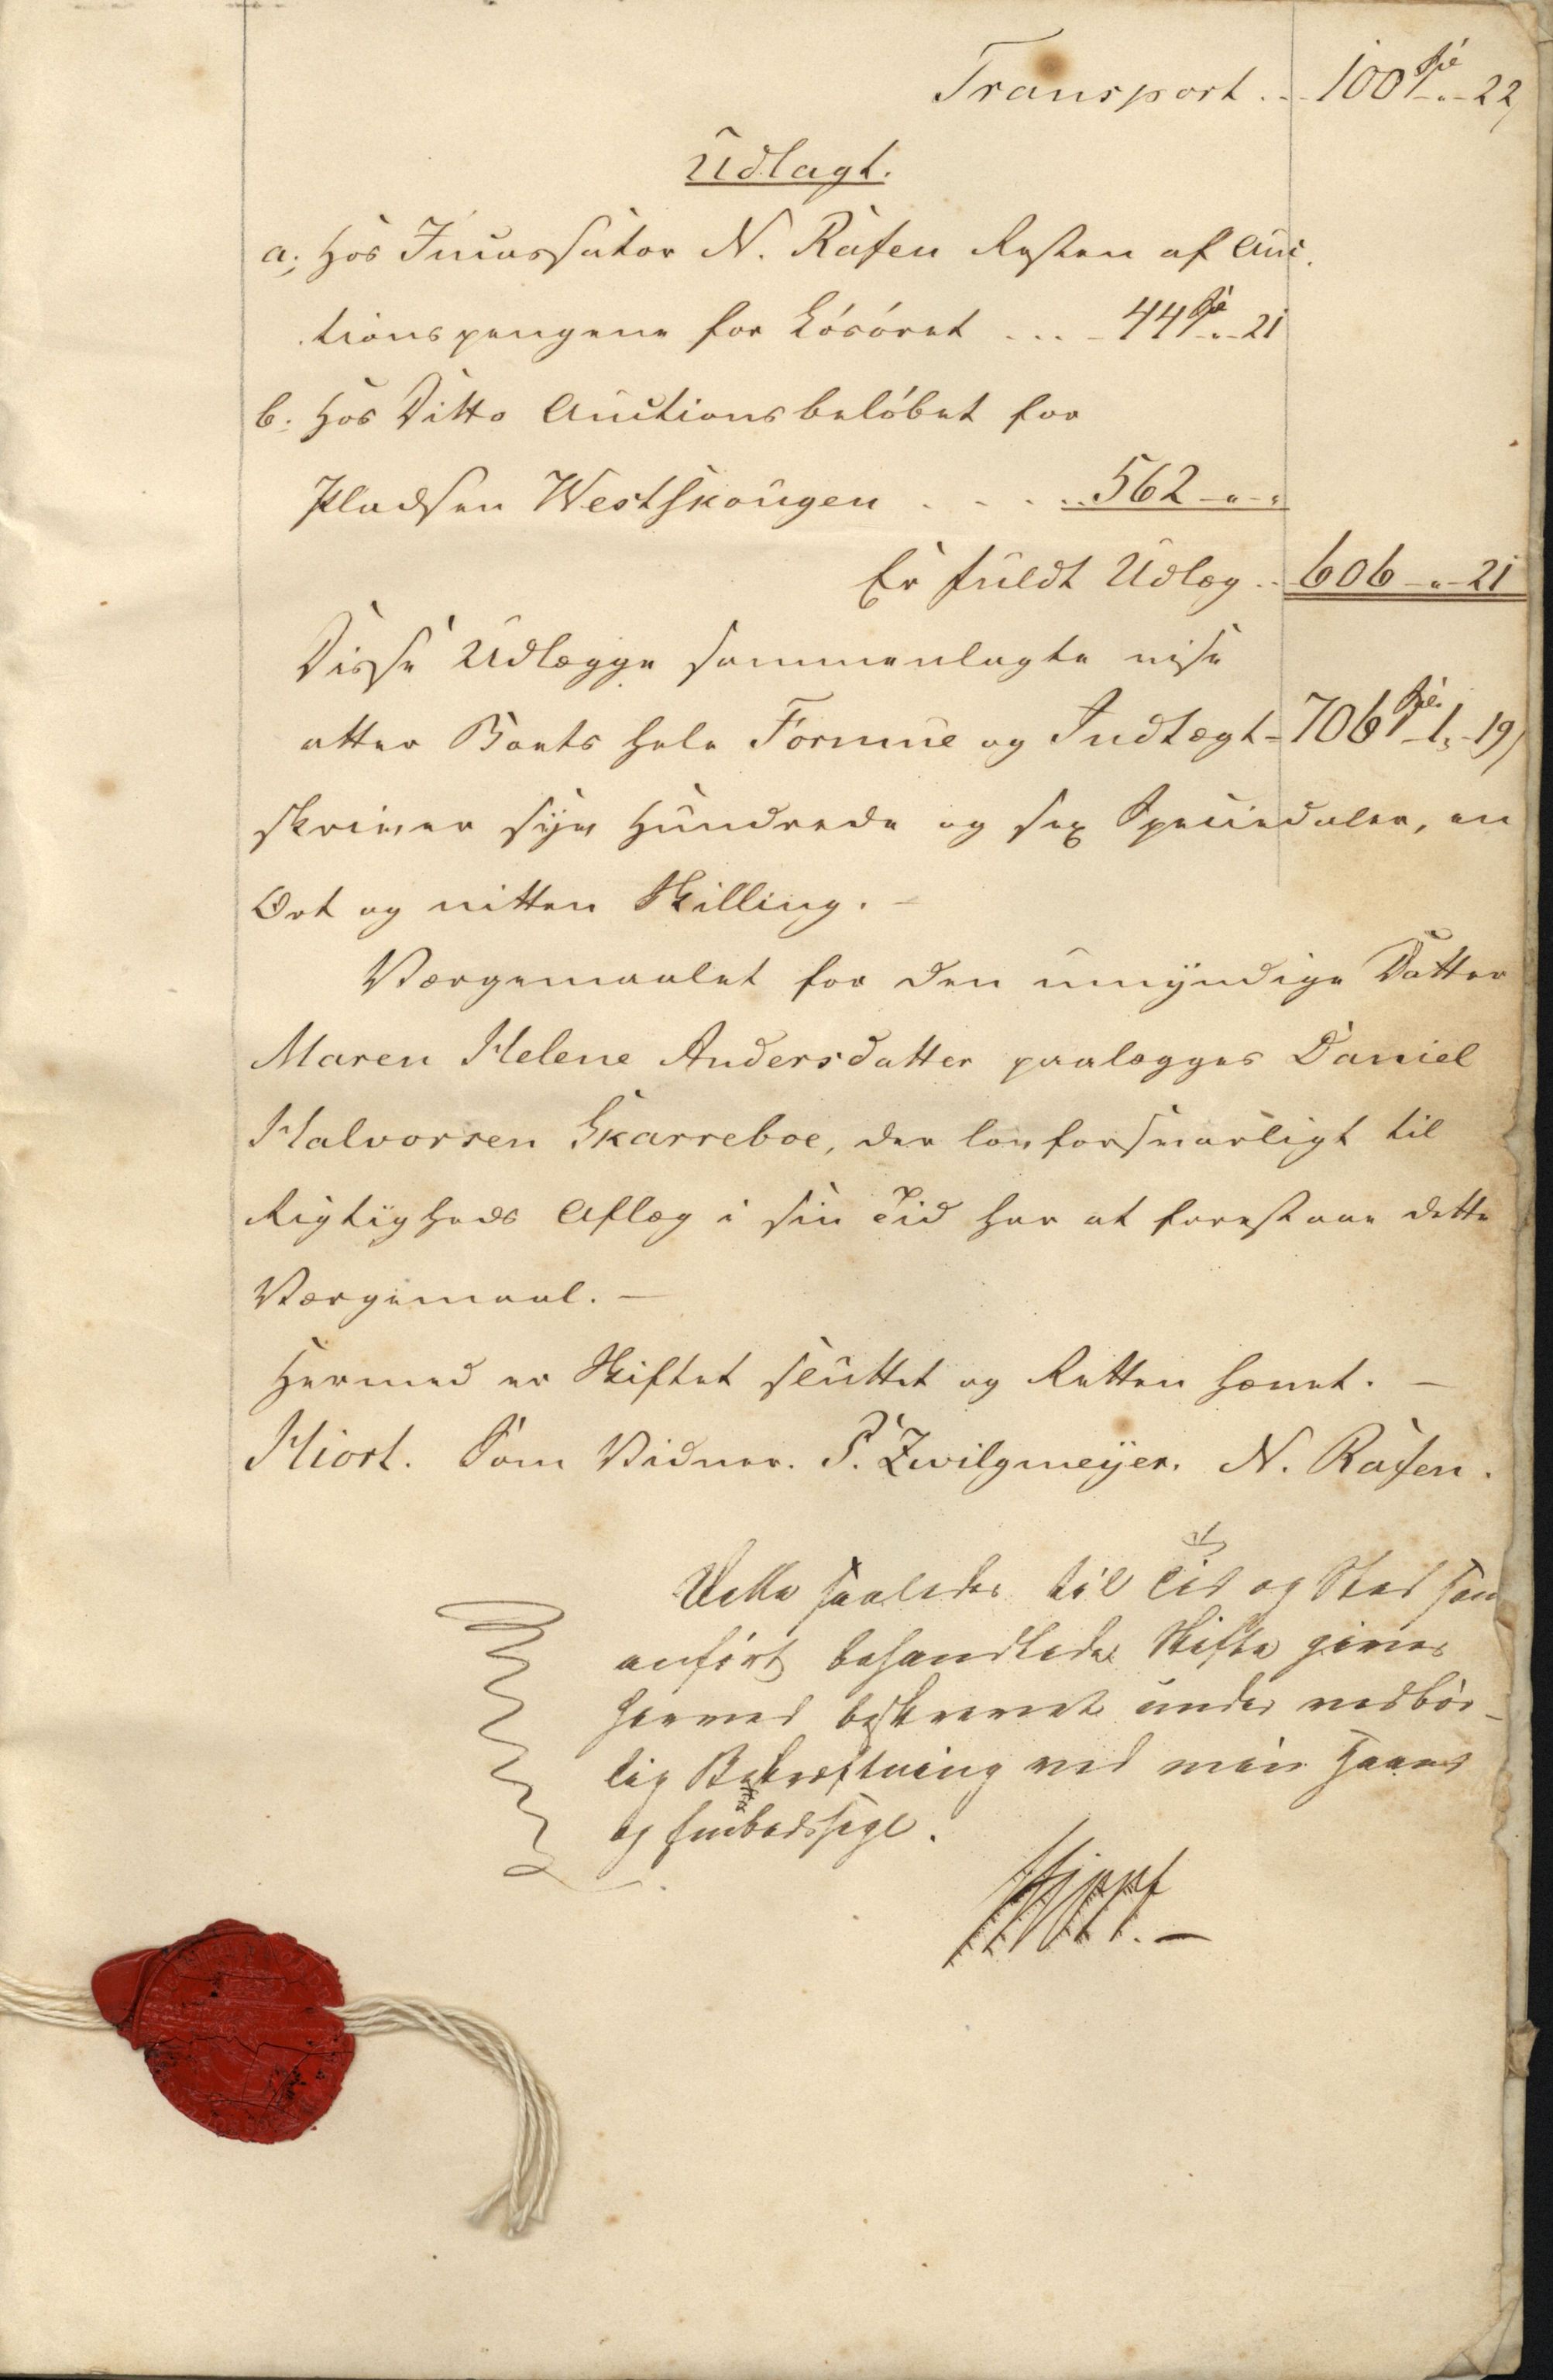 Transport . . 100 Spd „ - 22
Udlagt.
a; hos Incassator N. Rafen Resten af Auc-
tionspengene for Løsøret . . . 44 Spd „ - 21
b. hos Ditto Auctionsbeløbet for
Pladsen Westskougen . . . . 562 - „ - „
Er fuldt Udlæg . . 606 - „ - 21
Disse Udlægge sammenlagte vise
atter Boets hele Formue og Indtægt = 706 Spd 1 „ 19
skriver syv hundrede og sex Speciedaler, en
Ort og nitten Skilling. -
Værgemaalet for den umyndige Datter
Maren Helene Andersdatter paalægges Daniel
Halvorsen Skarreboe, der lovforsvarligt til
Rigtigheds Aflæg i sin Tid har at forestaae dette
Værgemaal. -
Hermed er Skiftet sluttet og Retten hævet. -
Hiort. Som Vidner. P. Zwilgmeÿer. N. Rafen.
Dette saaledes til Tid og Sted som
anført behandlede Skifte gives
herved beskrevet under vedbør-
lig Bekræftning ved min Haand
og Embedssegl.
Hjort. -